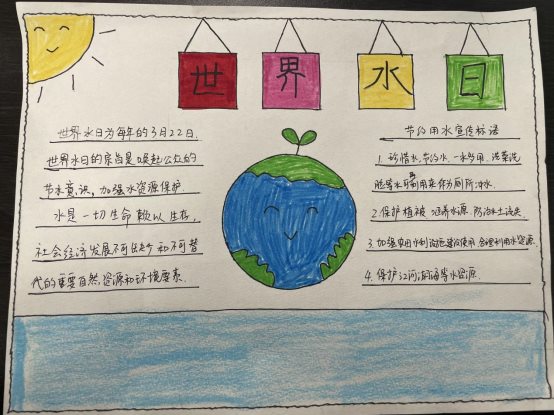 世界水日
世界水日为每年的3月22日.
世界水日的宗旨是唤起公众的
节水意识，加强水资源保护.
水是一切生命赖以生存，
社会经济发展不可缺少和不可替
代的重要自然资源和环境要素.
节约用水宣传标语
1. 珍惜水,节约水,一水多用.洗菜洗
脸等水可用来作为厕所冲水.
2.保护植被 涵养水源.防治水土流失
3.加强农田水利设施建设使用.合理利用水资源.
4.保护江河湖海等水资源.